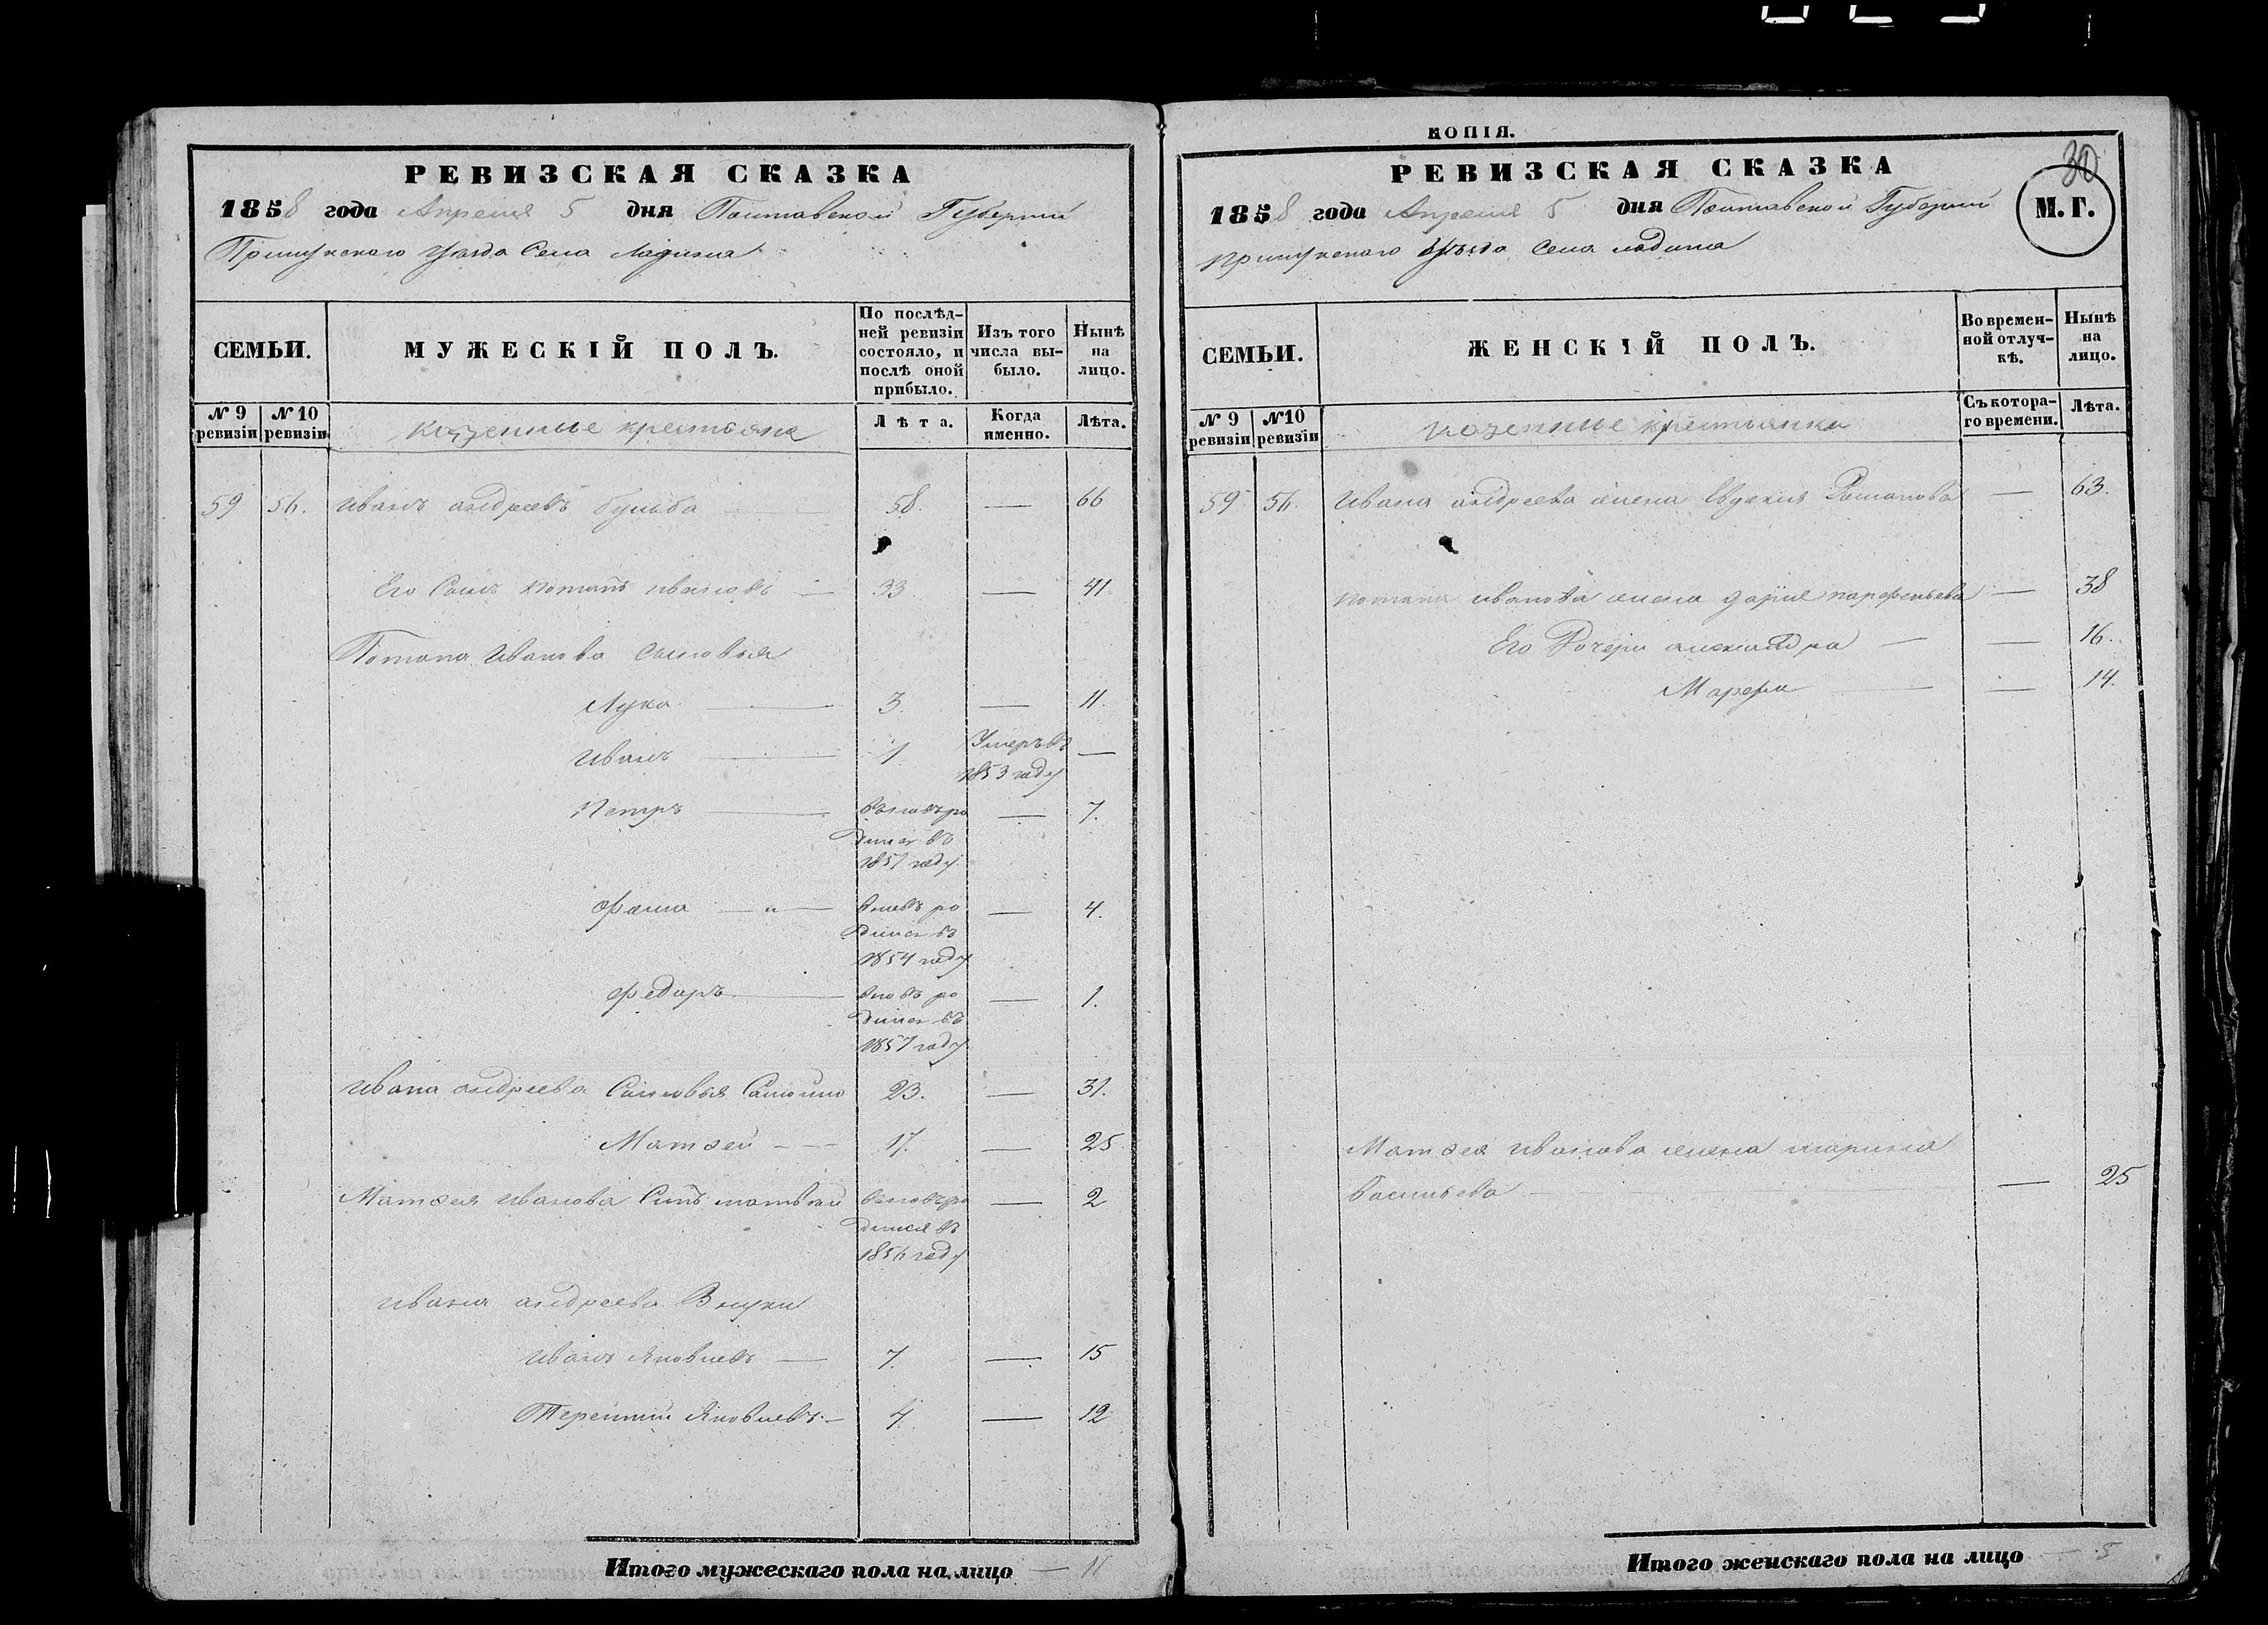 РЕВИЗСКАЯ СКАЗКА
1858 года Апреля 5 дня Полтавской Губернии
Прилукского уезда Села Ладина
СЕМЬИ.
МУЖЕСКІЙ ПОЛЪ.
По послѣд-
ней ревизіи
состояло, и
послѣ оной
прибыло.
Изъ того
числа вы-
было.
Нынѣ
на
лицо.
№ 9
ревизіи
№ 10
ревизіи
казенные крестьяне
Лѣта.
Когда
именно.
Лѣта.
59 56. Иванъ андреевъ бульба 58. — 66
Его Сынъ Потапъ ивановъ — 33 — 41
Потапа Иванова сыновья
Лука — 3. — 11.
Иванъ — 1 Умеръ въ —
1853 году
Петръ — вновь ро — 7.
дился въ
1851 году
Фома — „ — вновь ро — 4.
дился въ
1854 году
Федоръ — вновь ро — 1.
дился въ
1857 году
Ивана андреева Сыновья 23. — 31.
Матвей — 17. — 25
Матвея Иванова Сынъ 2
дился въ
1856 году
ивана андреева Внуки
Иванъ Яковлевъ — 7. — 15
Терентий Яковлевъ — 4. — 12
Итого мужескаго пола на лицо — 11
КОПІЯ.
30
РЕВИЗСКАЯ СКАЗКА
1858 года Апреля 5 дня Полтавской Губернии
М. Г.
прилукского уезда Села ладина
СЕМЬИ.
ЖЕНСКІЙ ПОЛЪ.
Во времен-
ной отлуч-
кѣ.
Нынѣ
на
лицо.
№ 9
ревизіи
№10
ревизіи
казенные крестьянки
Съ котора-
го времени.
Лѣта.
59 56. Ивана андреева жена Евдокия Романова — 63.
потапа иванова жена дария парфеньева — 38
Его Дочери александра — — 16.
Марфа — — 14.
Матвея иванова жена марина
Васильева — — 25
Итого женскаго пола на лицо — 5